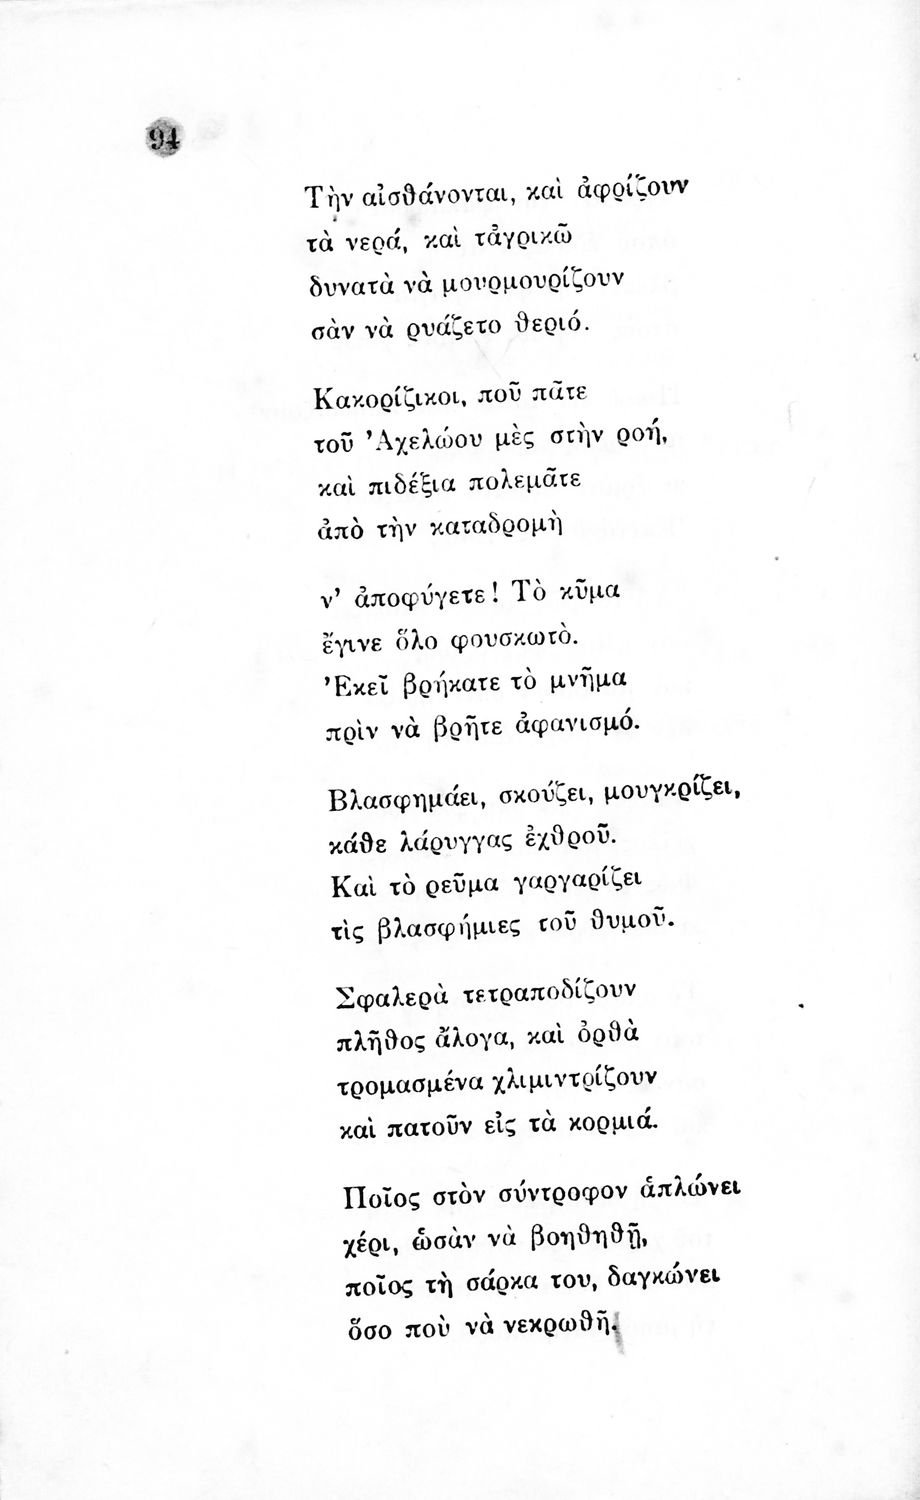 94
Τὴν αἰσθάνονται, καὶ ἀφρίζουν
τὰ νερά, καὶ τἀγρικῶ
δυνατὰ νὰ μουρμουρίζουν
σὰν νὰ ρυάζετο θεριό.
Κακορίζικοι, ποῦ πᾶτε
τοῦ Ἀχελώου μὲς στὴν ροή,
καὶ πιδέξια πολεμᾶτε
ἀπὸ τὴν καταδρομὴ
ν’ ἀποφύγετε! Τὸ κῦμα
ἔγινε ὅλο φουσκωτὸ.
Ἐκεῖ βρήκατε τὸ μνῆμα
πρὶν νὰ βρῆτε ἀφανισμό.
Βλασφημάει, σκούζει, μουγκρίζει,
κάθε λάρυγγας ἐχθροῦ.
Καὶ τὸ ρεῦμα γαργαρίζει
τὶς βλασφήμιες τοῦ θυμοῦ.
Σφαλερὰ τετραποδίζουν
πλῆθος ἄλογα, καὶ ὀρθὰ
τρομασμένα χλιμιντρίζουν
καὶ πατοῦν εἰς τὰ κορμιά.
Ποῖος στὸν σύντροφον ἁπλώνει
χέρι, ὡσὰν νὰ βοηθηθῇ,
ποῖος τὴ σάρκα του, δαγκώνει
ὅσο ποὺ νὰ νεκρωθῆ.